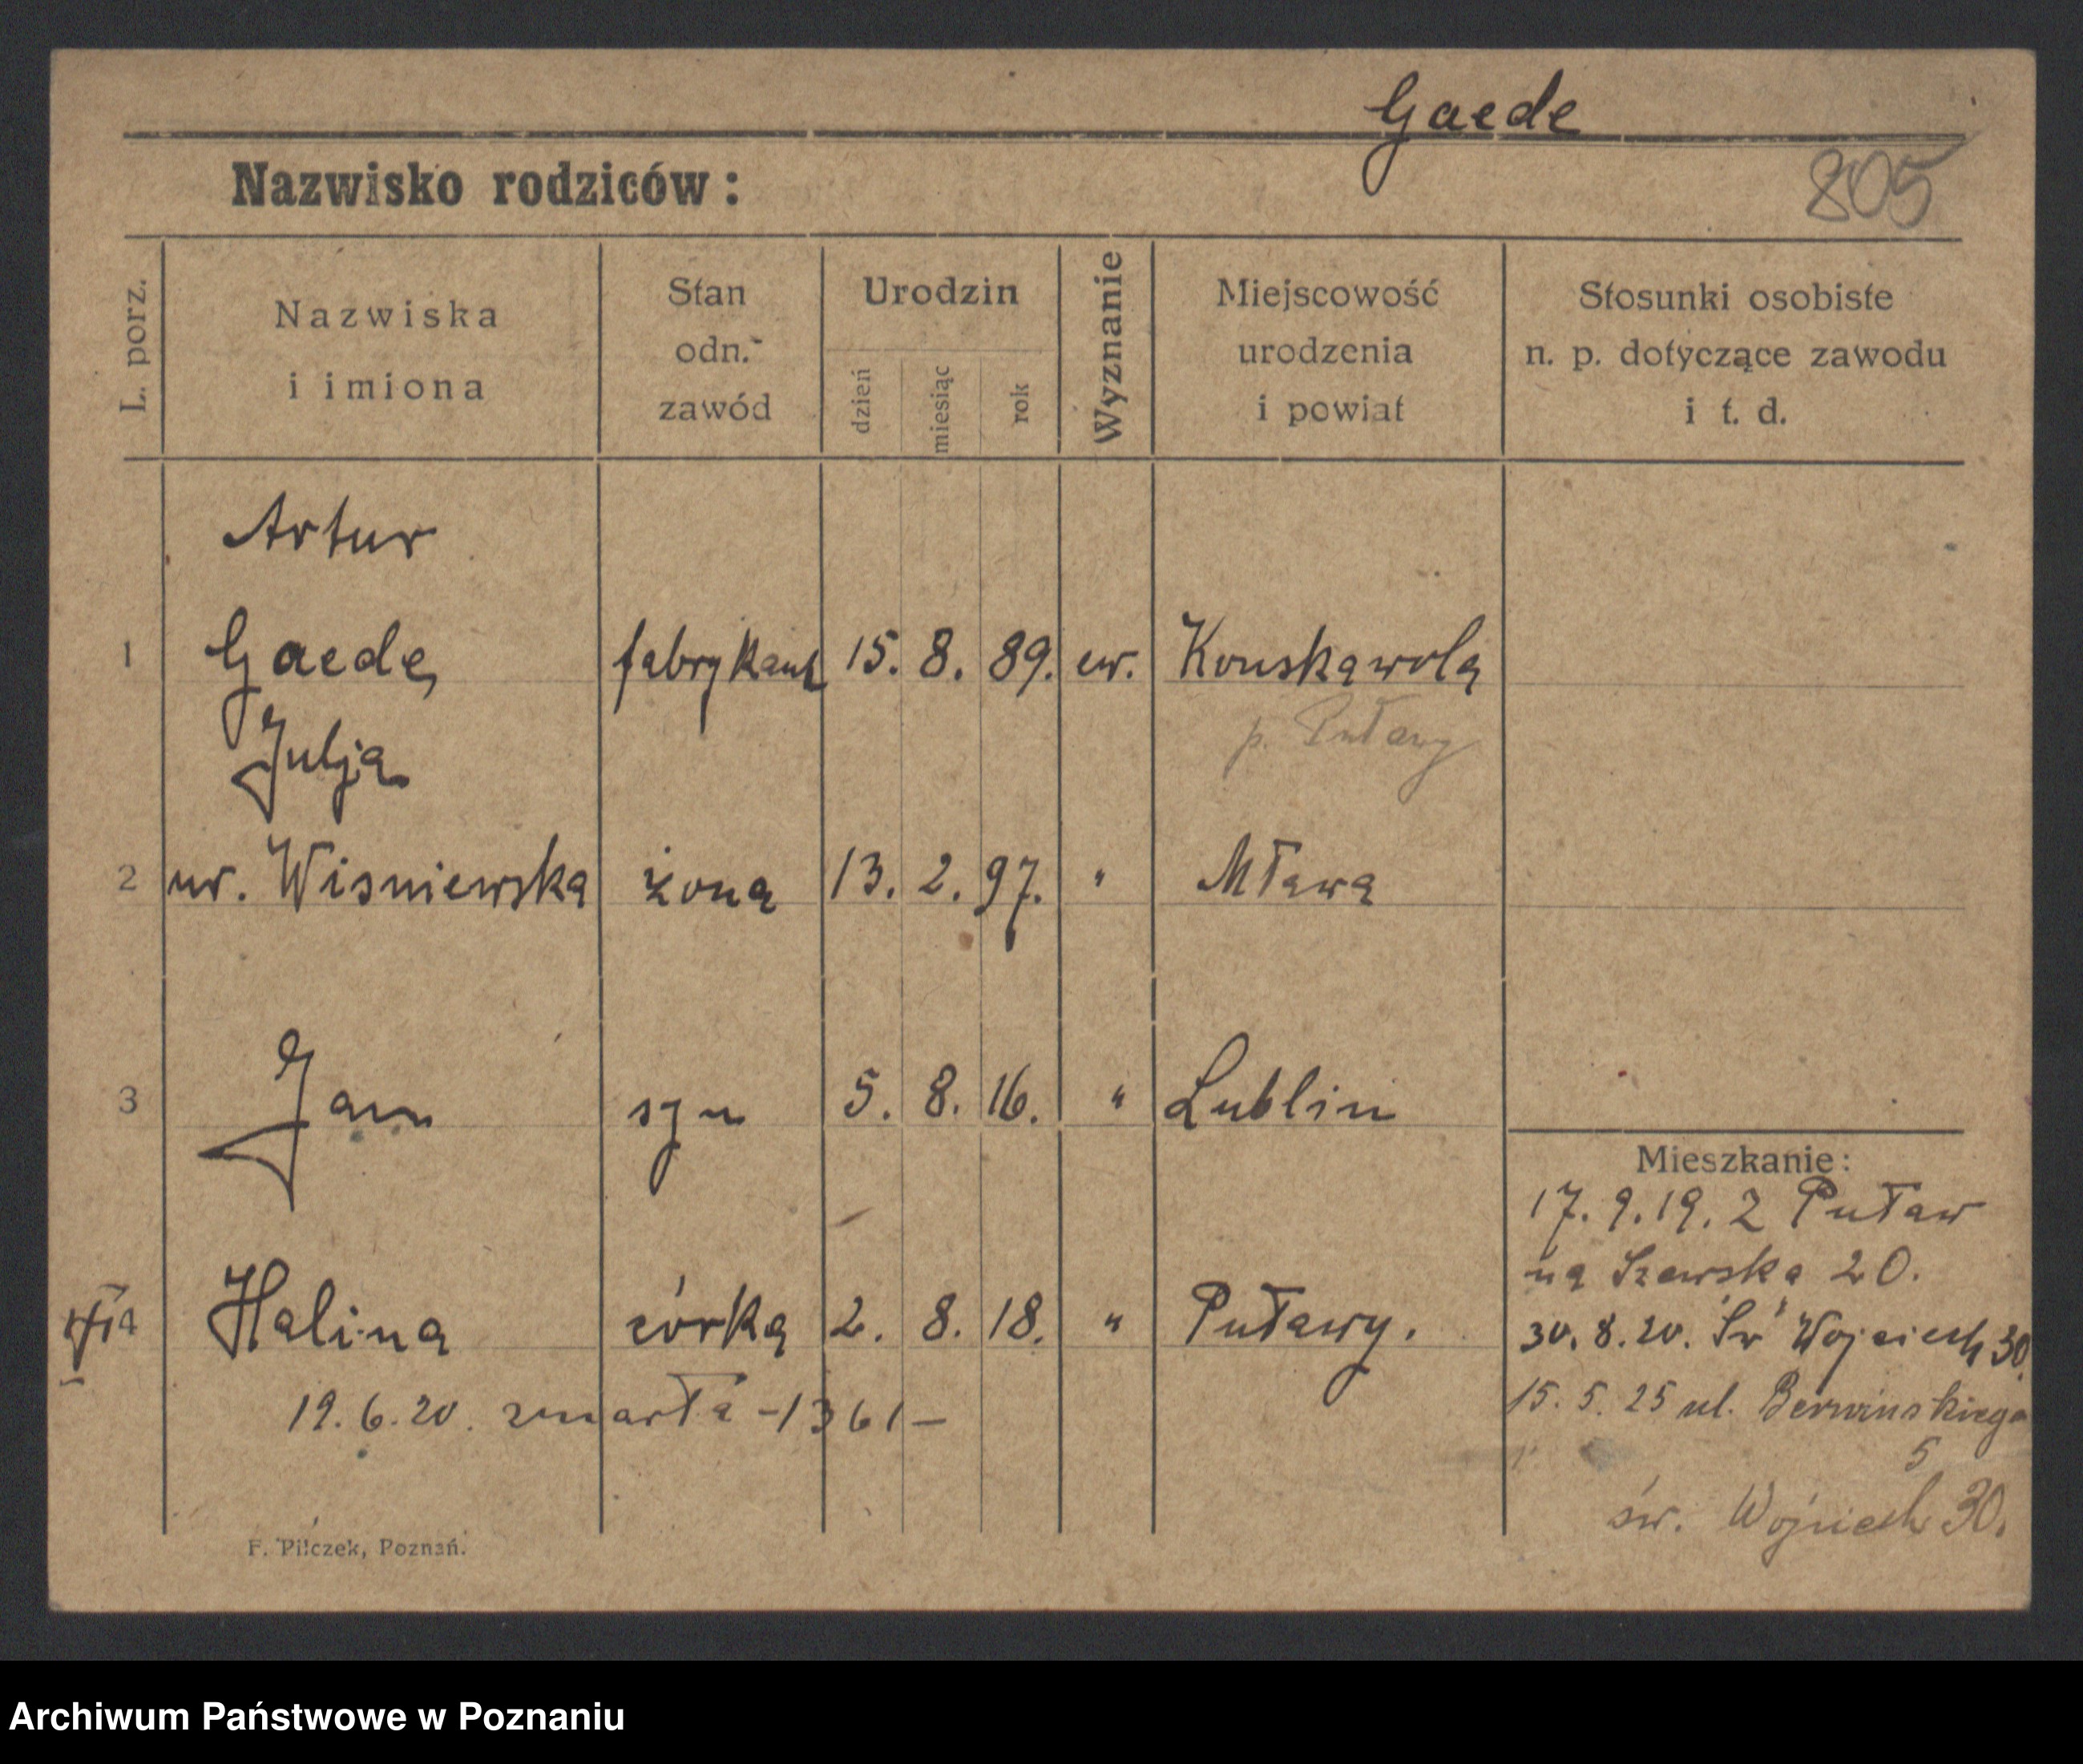 Gaede
Nazwisko rodziców:
805
L. porz.
Nazwiska
i imiona
Stan
odn.
zawód
Urodzin
dzień
miesiąc
rok
Wyznanie
Miejscowość
urodzenia
i powiat
Stosunki osobiste
n. p. dotyczące zawodu
i t. d.
Artur
1 Gaede, fabrykant 15. 8. 89. ew. Konskawola
p. Puławy
Julja
2 ur. Wisniewska żona 13. 2. 97. " Mława
3 Jan syn 5. 8. 16. " Lublin
Mieszkanie:
17. 9. 19. z Puław
na Szewska 20.
4 Halina córka 2. 8. 18. " Puławy.
30. 8. 20. Św Wojciech 30.
19. 6. 20. zmarła -1361-
15. 5. 25 ul. Berwinskiego
5
św. Wojciech 30.
F. Pilczek, Poznań.
Archiwum Państwowe w Poznaniu